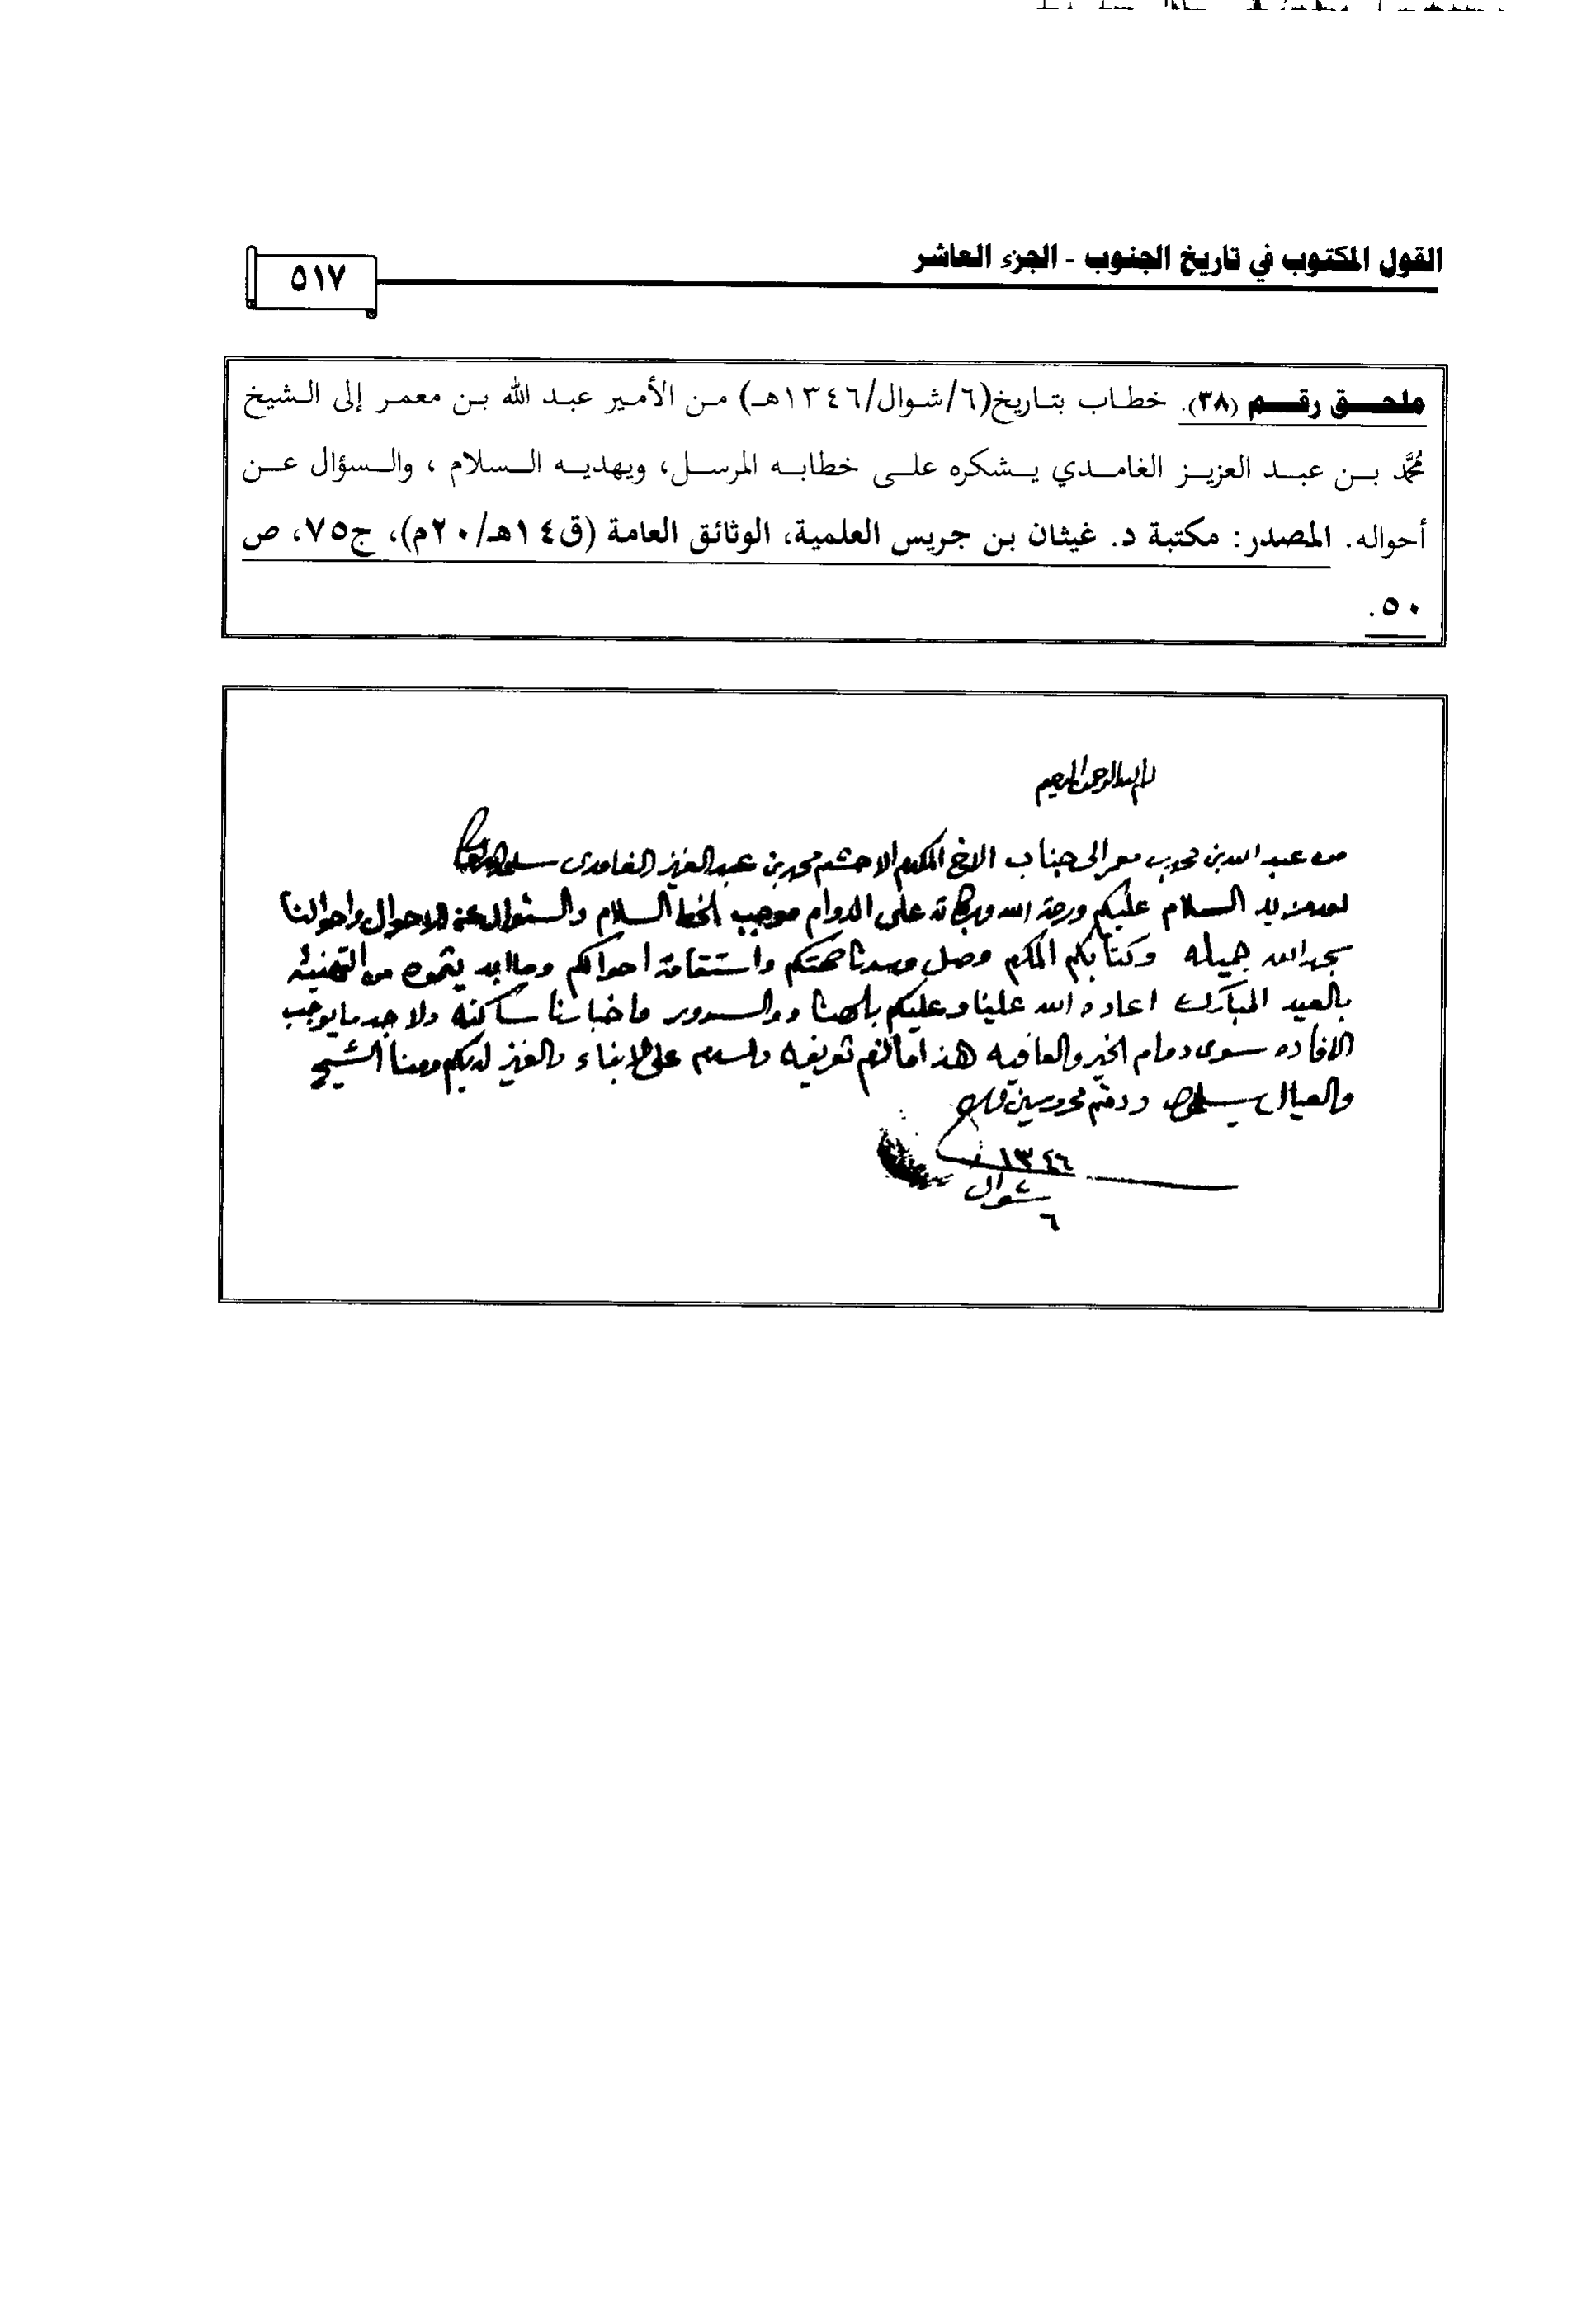 القول المكتوب في تاريخ الجنوب - الجزء العاشر
٥١٧
ملحق رقم (٣٨). خطاب بتاريخ(٦/شوال/١٣٤٦هـ) من الأمير عبد الله بن معمر إلى الشيخ
مُحمَّد بن عبد العزيز الغامدي يشكره على خطابه المرسل، ويهديه السلام ، والسؤال عن
أحواله. المصدر: مكتبة د. غيثان بن جريس العلمية، الوثائق العامة (ق١٤هـ/٢٠م)، ج٧٥، ص
٥٠.
بسم الله الرحمن الرحيم
من عبد الله بن محمد بن معمر الى جناب الاخ المكرم الاحشم محمد بن عبد العزيز الغامدى سلمه الله تعالى
بعد مزيد السلام عليكم ورحمة الله وبركاته على الدوام موجب الخط السلام والسئوال عن الاحوال واحوالنا
بحمد الله جميله وكتابكم المكرم وصل وسرنا صحتكم واستقامة احوالكم وما ابديتموه من التهنيئه
بالعيد المبارك اعاده الله علينا وعليكم والسرور اخبارنا ساكنه ولا جد ما يوجب
الافاده سوى دوام الخير والعافيه هذا ما لزم تعريفه والسلام على الابناء والعزيز لديكم ومنا الشيخ
والعيال يسلمون ودمتم محروسين
١٣٤٦
شوال
٦